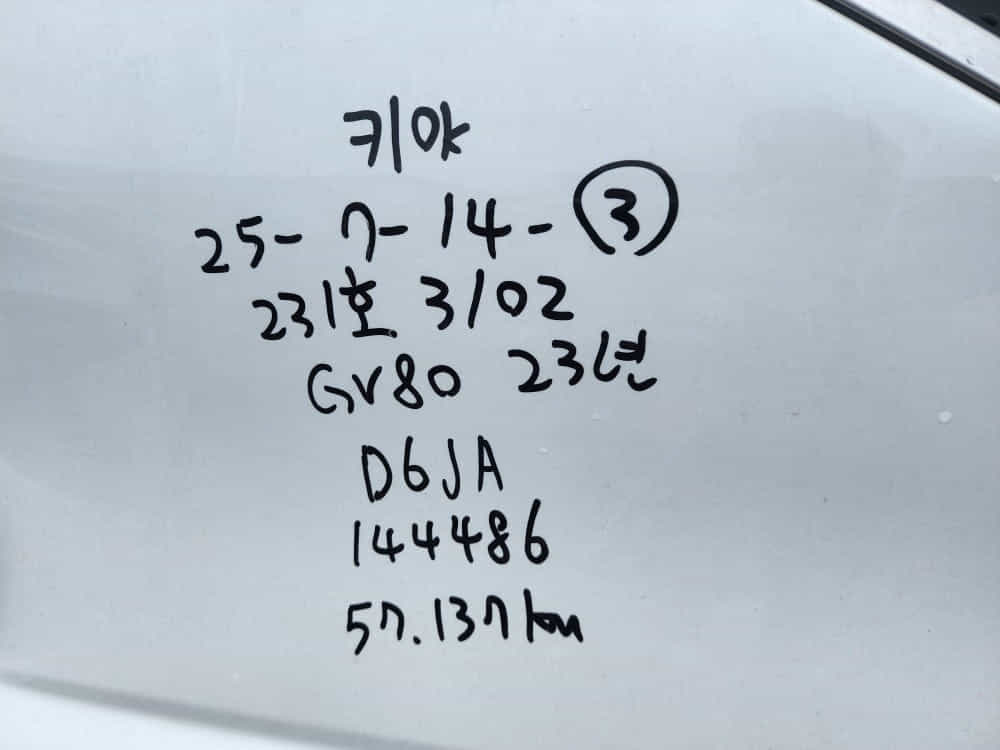 키약
25-7-14-③
231호 3102
GV80 23년
D6JA
144486
57.137km